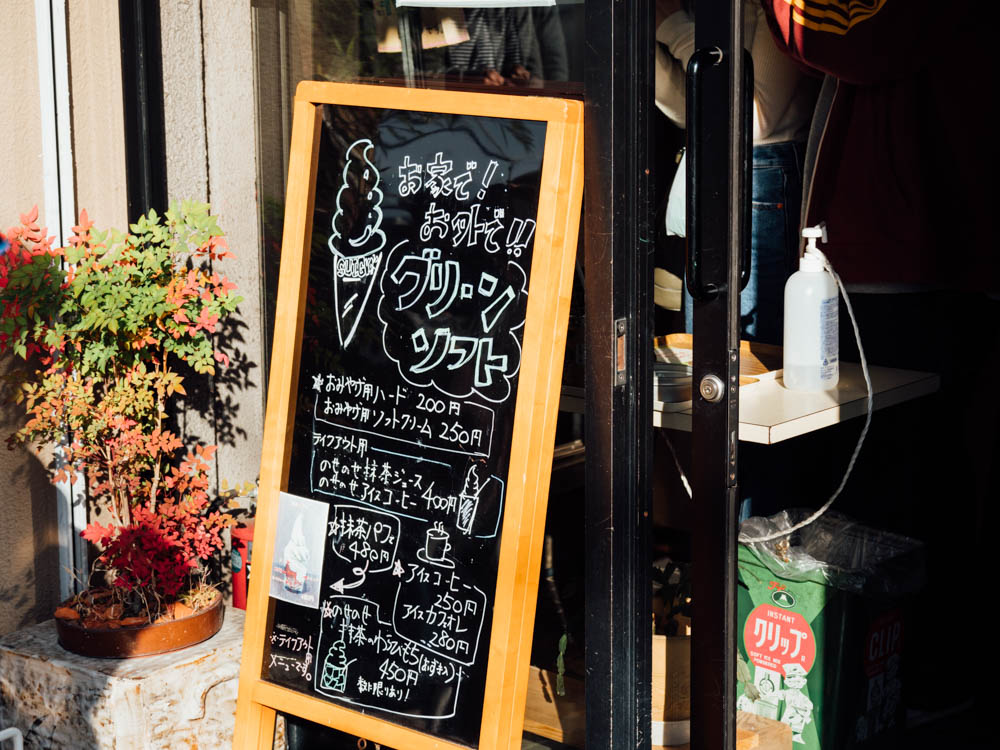 お家で!
お外で!!
グリーン
ソフト
おみやげ用ハード 200円
おみやげ用ソフトクリーム 250円
テイクアウト用
のせのせ抹茶ジュース
のせのせアイスコーヒー 400円
抹茶パフェ
480円
アイスコーヒー
250円
アイスカフェオレ
280円
のせのせ
抹茶
450円
数に限りあり!
※テイクアウト
メニューです。
INSTANT
クリップ
CLIP